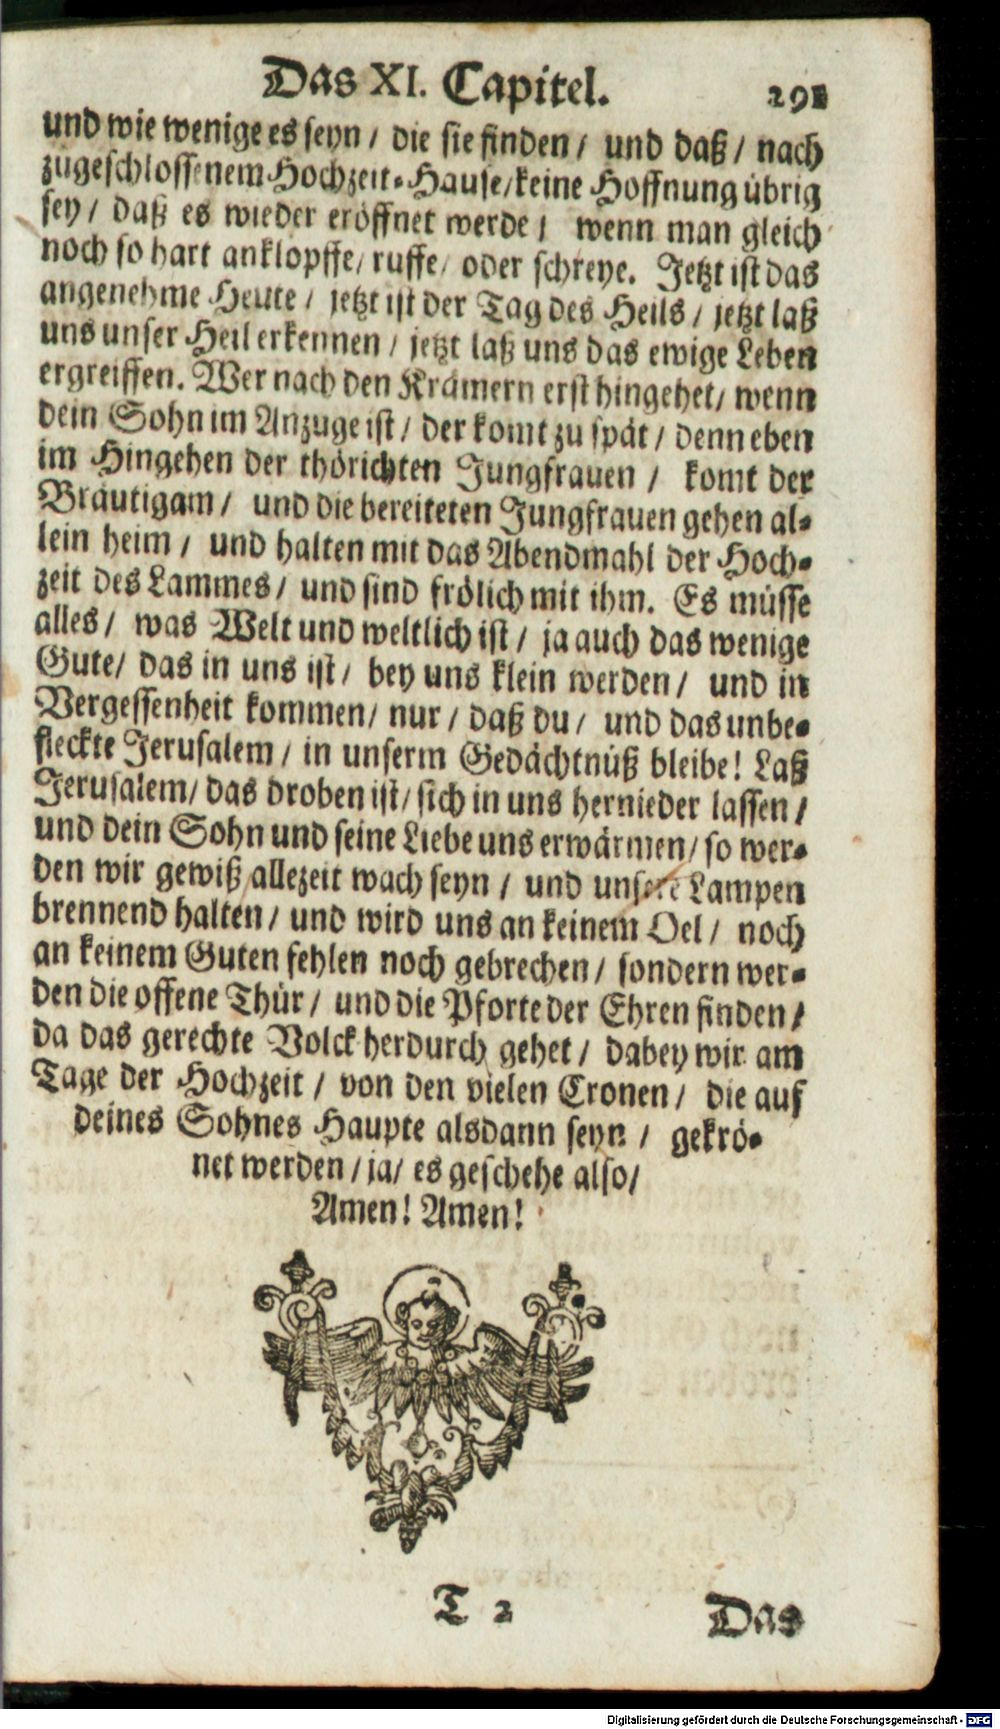 Das XI. Capitel. 291
und wie wenige es seyn / die sie finden / und daß / nach
zugeschlossenem Hochzeit-Hause / keine Hoffnung übrig
sey / daß es wieder eröffnet werde / wenn man gleich
noch so hart anklopffe / ruffe / oder schreye. Jetzt ist das
angenehme Heute / jetzt ist der Tag des Heils / jetzt laß
uns unser Heil erkennen / jetzt laß uns das ewige Leben
ergreiffen. Wer nach den Krämern erst hingehet / wenn
dein Sohn im Anzuge ist / der komt zu spät / denn eben
im Hingehen der thörichten Jungfrauen / komt der
Bräutigam / und die bereiteten Jungfrauen gehen al-
lein heim / und halten mit das Abendmahl der Hoch-
zeit des Lammes / und sind frölich mit ihm. Es müsse
alles / was Welt und weltlich ist / ja auch das wenige
Gute / das in uns ist / bey uns klein werden / und in
Vergessenheit kommen / nur / daß du / und das unbe-
fleckte Jerusalem / in unserm Gedächtnüß bleibe! Laß
Jerusalem / das droben ist / sich in uns hernieder lassen /
und dein Sohn und seine Liebe uns erwärmen / so wer-
den wir gewiß allezeit wach seyn / und unsere Lampen
brennend halten / und wird uns an keinem Oel / noch
an keinem Guten fehlen noch gebrechen / sondern wer-
den die offene Thür / und die Pforte der Ehren finden /
da das gerechte Volck herdurch gehet / dabey wir am
Tage der Hochzeit / von den vielen Cronen / die auf
deines Sohnes Haupte alsdann seyn / gekrö-
net werden / ja / es geschehe also /
Amen! Amen!
T 2 Das
Digitalisierung gefördert durch die Deutsche Forschungsgemeinschaft - DFG